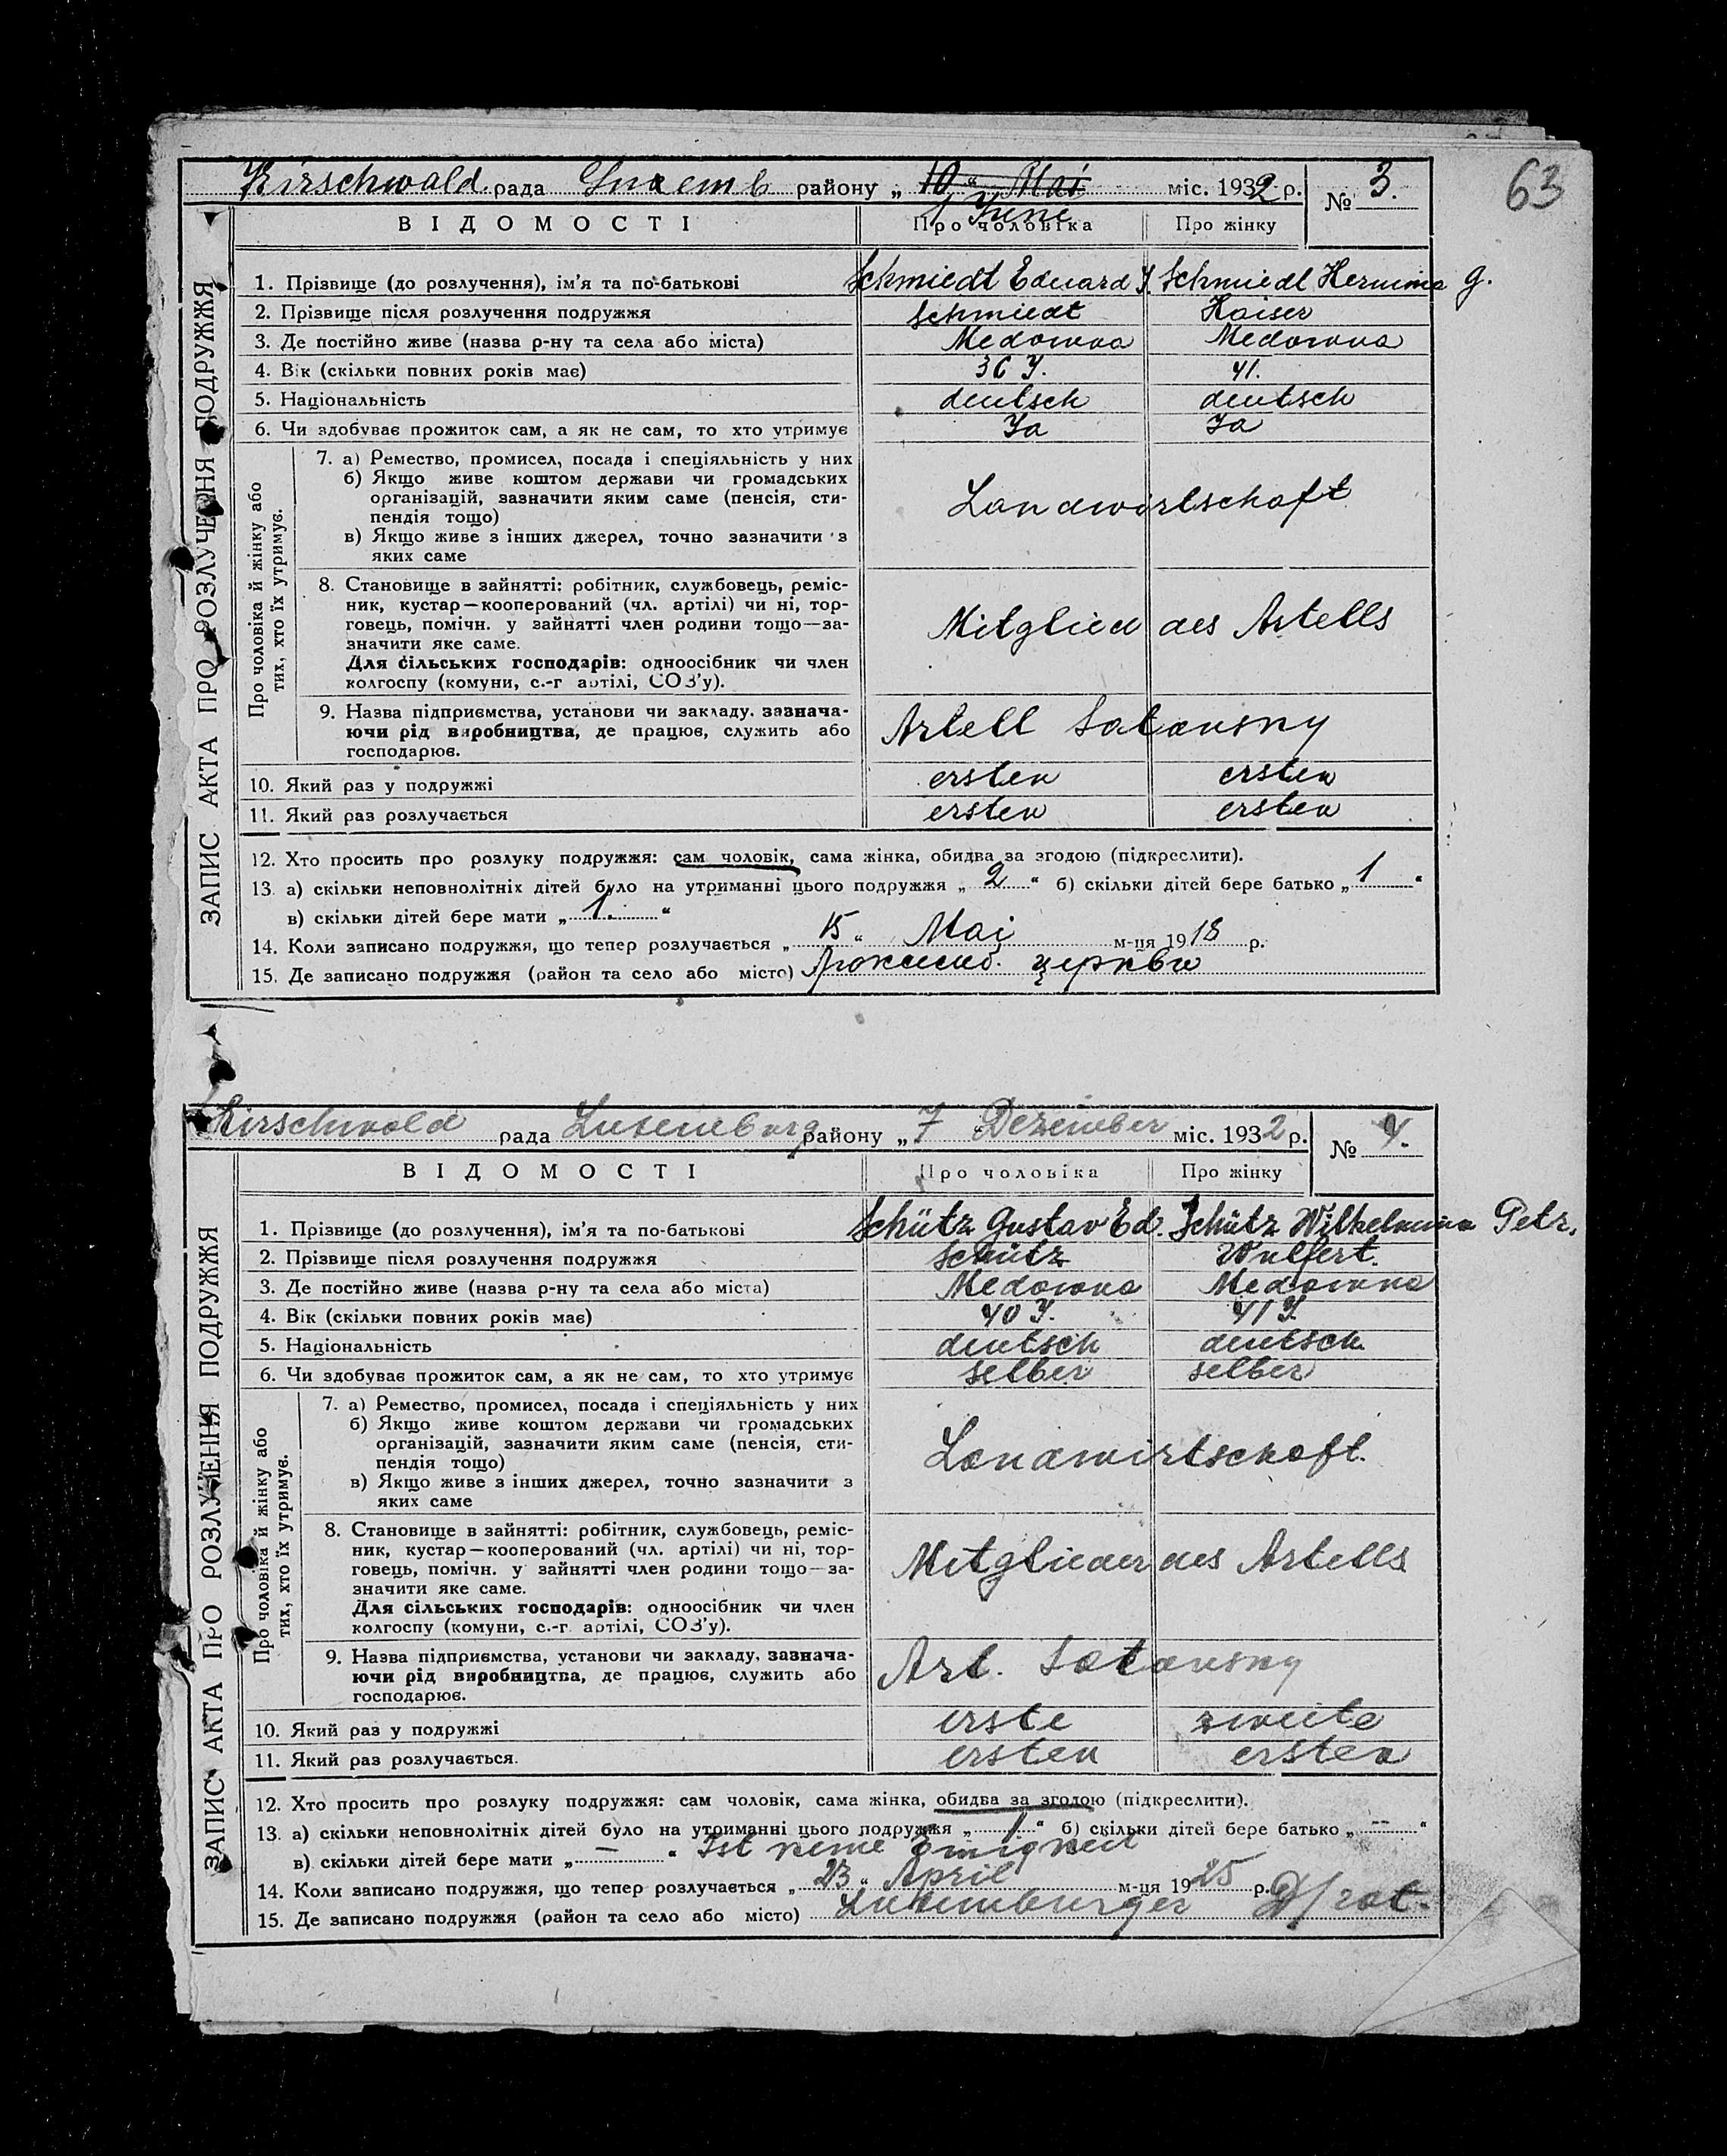 63
Kirschwald. рада Luxemb району „ 10 “ Mai міс. 1932 р. № 3.
1 June
ВІДОМОСТІ Про чоловіка Про жінку
ЗАПИС АКТА ПРО РОЗЛУЧЕННЯ ПОДРУЖЖЯ
1. Прізвище (до розлучення), ім'я та по-батькові Schmiedt Eduard J. Schmiedt Hermina G.
2. Прізвище після розлучення подружжя Schmiedt Kaiser
3. Де постійно живе (назва р-ну та села або міста) Medowna Medowna
4. Вік (скільки повних років має) 36 J. 41.
5. Національність deutsch deutsch
6. Чи здобуває прожиток сам, а як не сам, то хто утримує Ja Ja
Про чоловіка й жінку або
тих, хто їх утримує.
7. а) Ремество, промисел, посада і спеціяльність у них
б) Якщо живе коштом держави чи громадських
організацій, зазначити яким саме (пенсія, сти-
пендія тощо)
в) Якщо живе з інших джерел, точно зазначити з
яких саме
Landwirtschaft
8. Становище в зайнятті: робітник, службовець, реміс-
ник, кустар—кооперований (чл. артілі) чи ні, тор-
говець, помічн. у зайнятті член родини тощо—за-
значити яке саме.
Для сільських господарів: одноосібник чи член
колгоспу (комуни, с.-г артілі, СОЗ'у).
Mitglied des Artells
9. Назва підприємства, установи чи закладу, зазнача-
ючи рід виробництва, де працює, служить або
господарює.
Artell Satowsny
10. Який раз у подружжі ersten ersten
11. Який раз розлучається ersten ersten
12. Хто просить про розлуку подружжя: сам чоловік, сама жінка, обидва за згодою (підкреслити).
13. а) скільки неповнолітніх дітей було на утриманні цього подружжя „ 2 “ б) скільки дітей бере батько „ 1 “
в) скільки дітей бере мати „ 1. “
14. Коли записано подружжя, що тепер розлучається „ 15 “ Mai м-ця 1918 р.
15. Де записано подружжя (район та село або місто) церкви
Kirschwald рада Luxemburg району „ 7 “ Dezember міс. 1932 р. № 4.
ВІДОМОСТІ Про чоловіка Про жінку
ЗАПИС АКТА ПРО РОЗЛУЧЕННЯ ПОДРУЖЖЯ
1. Прізвище (до розлучення), ім'я та по-батькові Schütz Gustav Ed. Schütz Wilhelmina Petr.
2. Прізвище після розлучення подружжя Schütz Wulfert.
3. Де постійно живе (назва р-ну та села або міста) Medowna Medowna
4. Вік (скільки повних років має) 40 J. 41 J.
5. Національність deutsch deutsch.
6. Чи здобуває прожиток сам, а як не сам, то хто утримує selber selber
Про чоловіка й жінку або
тих, хто їх утримує.
7. а) Ремество, промисел, посада і спеціяльність у них
б) Якщо живе коштом держави чи громадських
організацій, зазначити яким саме (пенсія, сти-
пендія тощо)
в) Якщо живе з інших джерел, точно зазначити з
яких саме
Landwirtschaft.
8. Становище в зайнятті: робітник, службовець, реміс-
ник, кустар—кооперований (чл. артілі) чи ні, тор-
говець, помічн. у зайнятті член родини тощо—за-
значити яке саме.
Для сільських господарів: одноосібник чи член
колгоспу (комуни, с.-г. артілі, СОЗ'у).
Mitglieder des Artells
9. Назва підприємства, установи чи закладу, зазнача-
ючи рід виробництва, де працює, служить або
господарює.
Art. Satowsny
10. Який раз у подружжі erste zweite
11. Який раз розлучається. ersten ersten
12. Хто просить про розлуку подружжя: сам чоловік, сама жінка, обидва за згодою (підкреслити).
13. а) скільки неповнолітніх дітей було на утриманні цього подружжя „ 1 “ б) скільки дітей бере батько „ — “
в) скільки дітей бере мати „ — “ Ist keine Einigkeit
14. Коли записано подружжя, що тепер розлучається „ 23 “ April м-ця 1925 р.
15. Де записано подружжя (район та село або місто) Luxemburger D/rat.